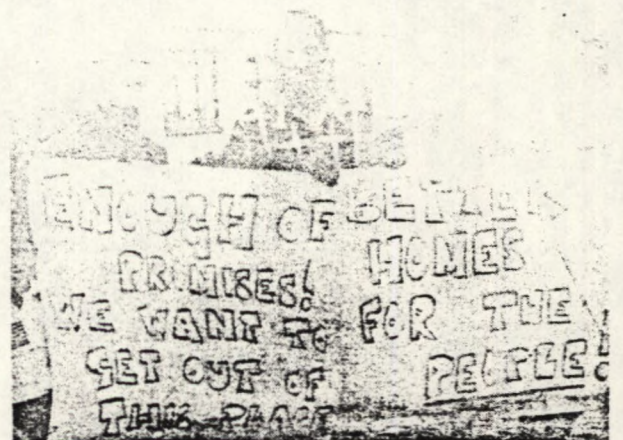 ENOUGH OF
PROMISES!
WE WANT TO
GET OUT OF
THIS PLACE
BETTER
HOMES
FOR THE
PEOPLE!